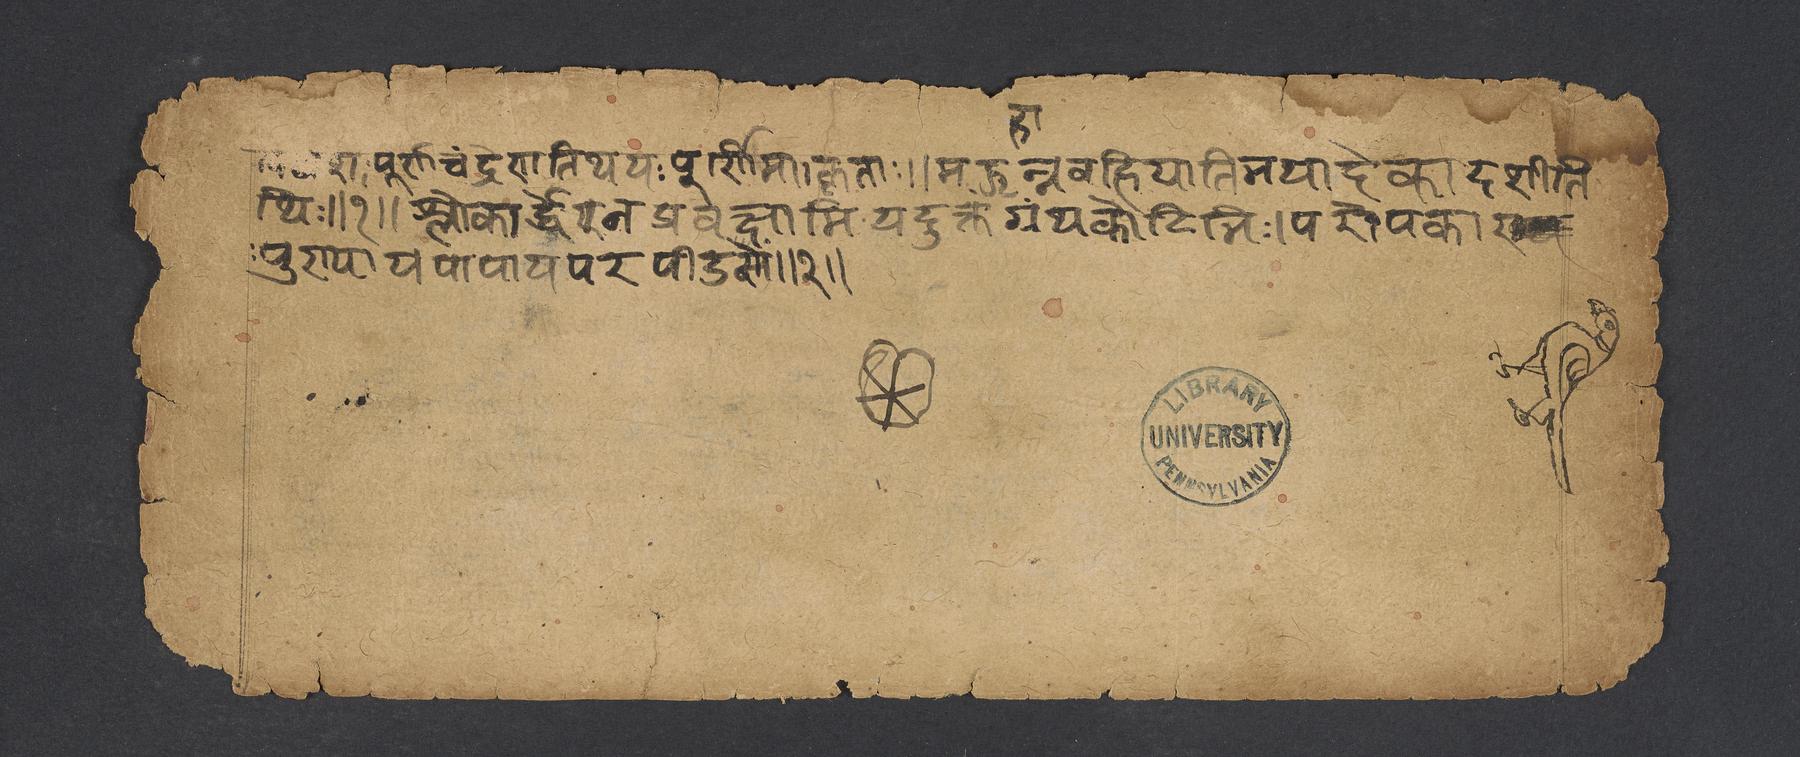 हा
पूर्णचंद्रेण तिथयः पूर्णिमा कृताः॥ भक्तन्न वहि याति भयादेकादशी ति
थिः॥१॥ श्लोकार्द्धेण न प्रवक्ष्यामि यदुक्तं ग्रंथकोटिभिः। परोपकार
ःपुण्याय पापाय परपीडनौ॥२॥
LIBRARY
UNIVERSITY
PENNSYLVANIA